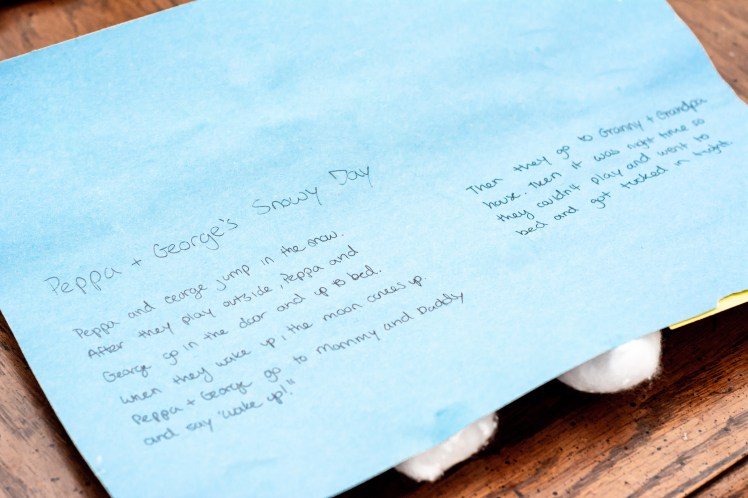 Peppa + George's Snowy Day
Peppa and George jump in the snow.
After they play outside, Peppa and
George go in the door and up to bed.
When they wake up, the moon comes up.
Peppa + George go to Mommy and Daddy
and say "wake up!"
Then they go to Granny + Grandpa
house. Then it was night time so
they couldn't play and went to
bed and got tucked in tight.